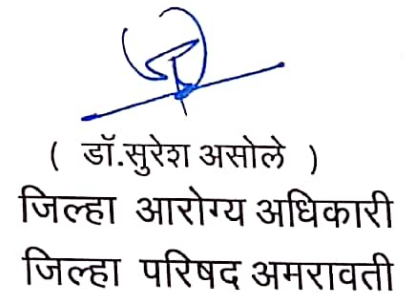 ( डॉ.सुरेश असोले )
जिल्हा आरोग्य अधिकारी
जिल्हा परिषद अमरावती